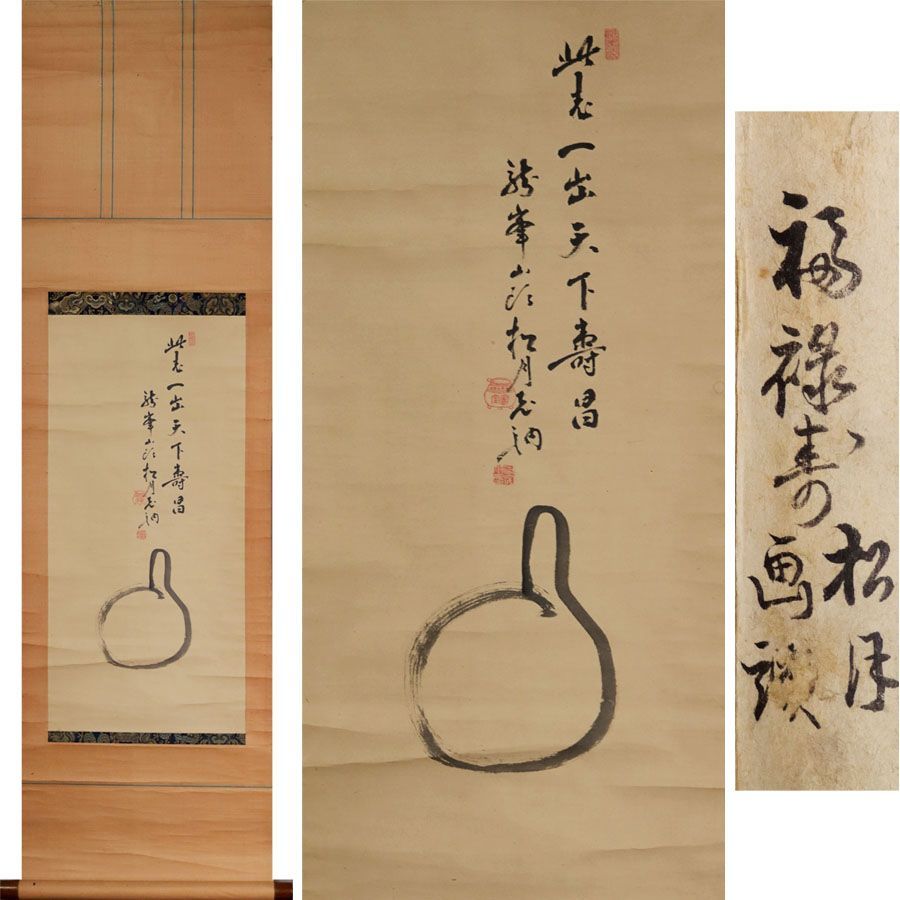 此老一出天下壽昌
龍峯山頭松月老衲
此老一出天下壽昌
龍峯山頭松月老衲
福禄寿画讃
松月